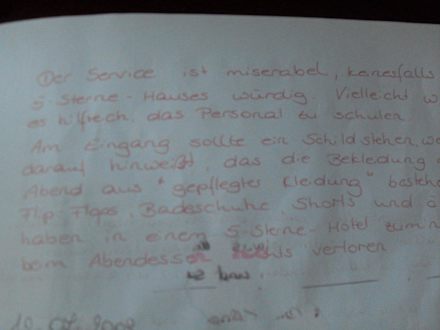 Der Service ist miserabel, keinesfalls
5-Sterne-Hauses würdig. Vielleicht
es hilfreich, das Personal zu schulen
Am Eingang sollte ein Schild stehen,
darauf hinweißt, das die Bekleidung
Abend aus "gepflegter Kleidung"
Flip Flops, Badeschuhe, Shorts und
haben in einem 5-Sterne-Hotel
beim Abendessen nichts verloren